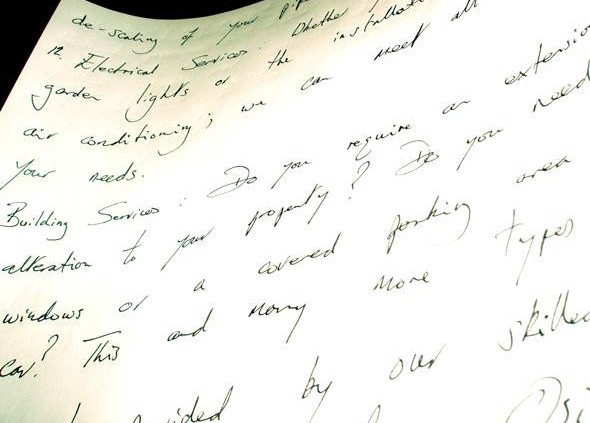 de-scaling of your
12. Electrical Services: Whether
garden lights or the installati
air conditioning; we can meet all
your needs.
Building Services: Do you require an extensio
alteration to your property? Do you need
windows or a covered parking area
car? This and many more types
by our skilled